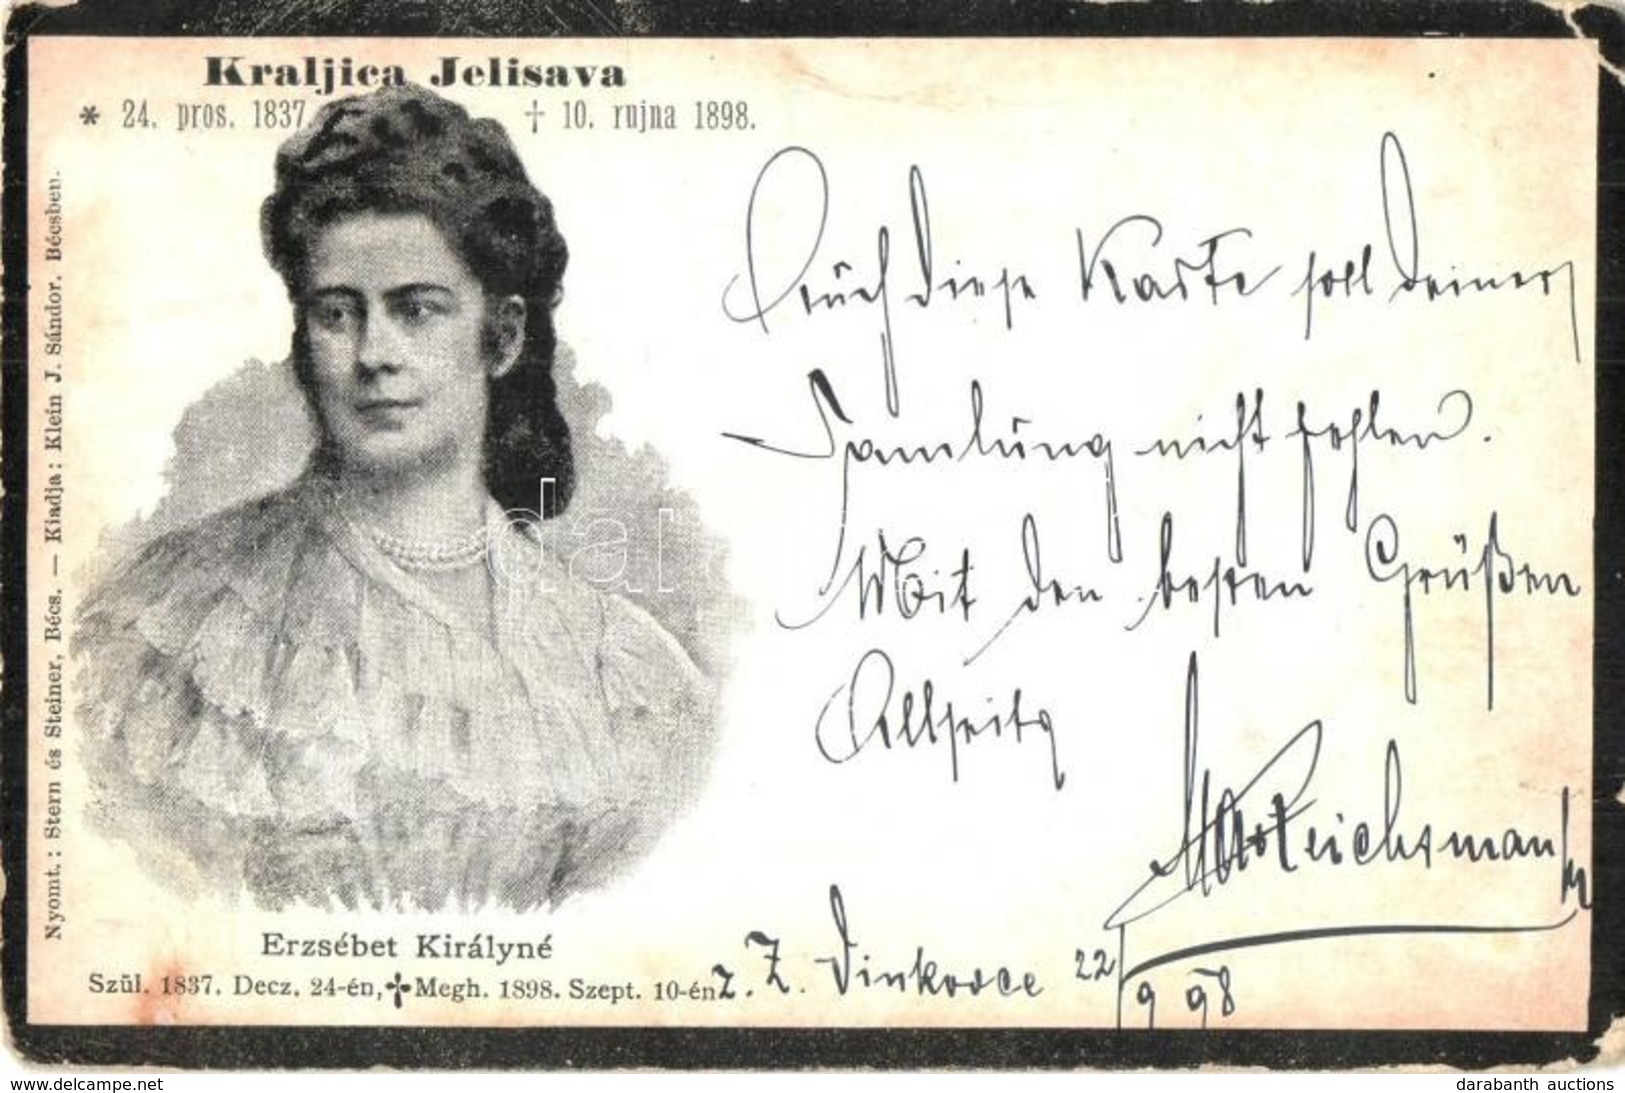 Kraljica Jelisava
* 24. pros. 1837. † 10. rujna 1898.
Nyomt.: Stern és Steiner, Bécs. — Kiadja: Klein J. Sándor. Bécsben.
Auch diese Karte soll deiner
Samlung nicht fehlen.
Mit den besten Grüßen
Allseits
Reichsmann
Z. Z. Vinkovce 22/9 98
Erzsébet Királyné
Szül. 1837. Decz. 24-én, † Megh. 1898. Szept. 10-én
darabanth
delcampe.net
darabanth auctions